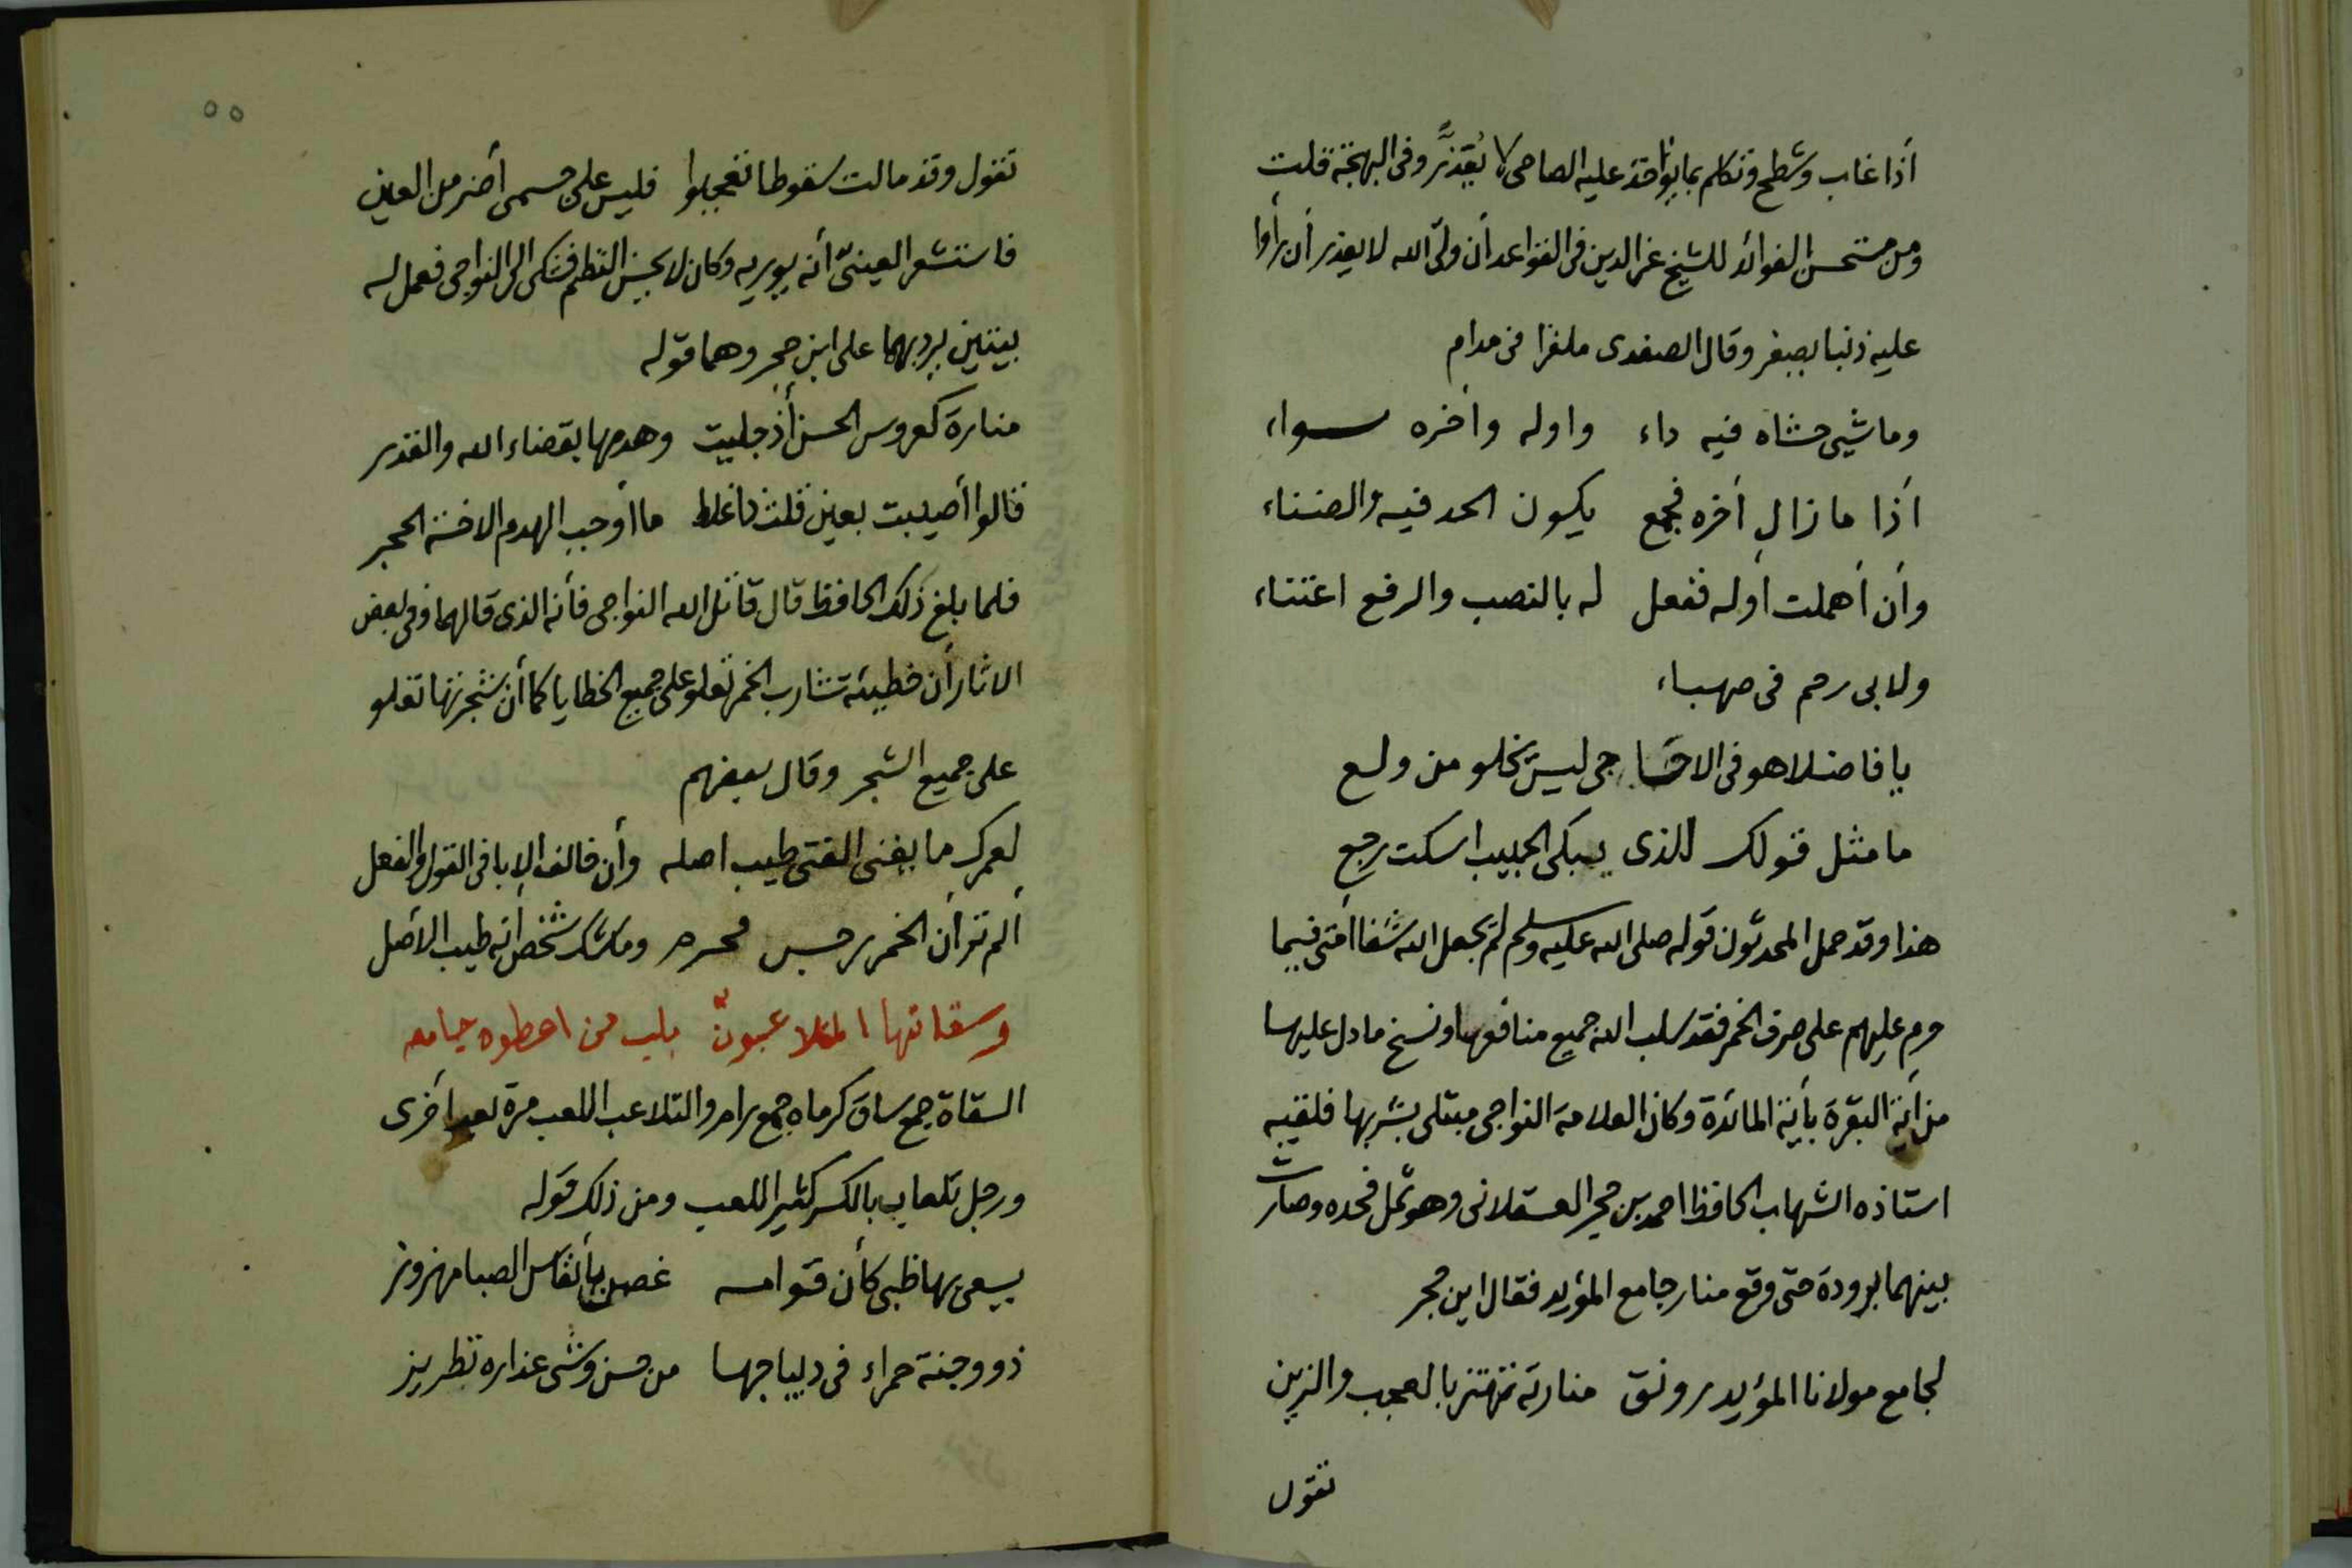 أذا غاب وشطح وتكلم بما يواخذ عليه الصاحى لا يُعَذَّر وفى البهجة قلت
ومن مستحسن الفوائد للشيخ عز الدين فى القواعد أن ولىّ الله لا يعذر أن رأوا
عليه ذنبا يصغر وقال الصفدى ملغزا فى مدام
وما شيى حشاه فيه داء واوله وأخره سواء
أذا ما زال أخره فجمع يكون الحد فيه والضناء
وأن أهملت أوله ففعل له بالنصب والرفع اعتناء
ولابى رحم فى صهباء
يا فاضلا هو فى الاحا جى ليس يخلو من ولع
ما مثل قولك للذى يبكى الحبيب اسكت رجع
هذا وقد حمل المحدثون قوله صلى الله عليه وسلم لم يجعل الله شفا أمتى فيما
حرم عليهم على صرف الخمر فقد سلب الله جميع منافعها ونسخ ما دل عليها
من أية البقرة بأية المائدة وكان العلامة النواجى مبتلى بشربها فلقيه
استاذه الشهاب الحافظ احمد بن حجر العسقلانى وهو ثمل فحده وصارت
بينهما برودة حتى وقع منار جامع المؤيد فقال ابن حجر
لجامع مولانا المؤيد رونق منارته تهتز بالعجب والزين
تقول
٥٥
تقول وقد مالت سقوطا تعجبوا فليس على حسمى أضر من العين
فاستشعر العينىّ أنه يوريه وكان لا يحسن النظم فشكى الى النواجى فعمل له
بيتين يرد بهما على ابن حجر وهما قوله
منارة كعروس الحسن أذ جليت وهدمها بقضاء الله والقدر
قالوا أصيبت بعين قلت ذا غلط ما أوجب الهدم الا خسة الحجر
فلما بلغ ذلك الحافظ قال قاتل الله النواجى فأنه الذى قالهما وفى بعض
الاثار أن خطيئة شارب الخمر تعلو على جميع الخطايا كما أن شجرتها تعلو
على جميع الشجر وقال بعضهم
لعمرك ما يغنى الفتى طيب اصله وأن خالف الابا فى القول والفعل
ألم تر أن الخمر رجس محرم وما شك شخص أنه طيب الأصل
وسقاتها المتلاعبون بلب من اعطوه جامه
السقاة جمع ساق كرماه جمع رام والتلاعب اللعب مرة بعد أخرى
ورجل تلعاب بالكسر كثير اللعب ومن ذلك قوله
يسعى بها ظبى كأن قوامه غصن بأنفاس الصبا مهزوز
ذو وجنة حمراء فى ديباجها من حسن وشى عذاره تطريز